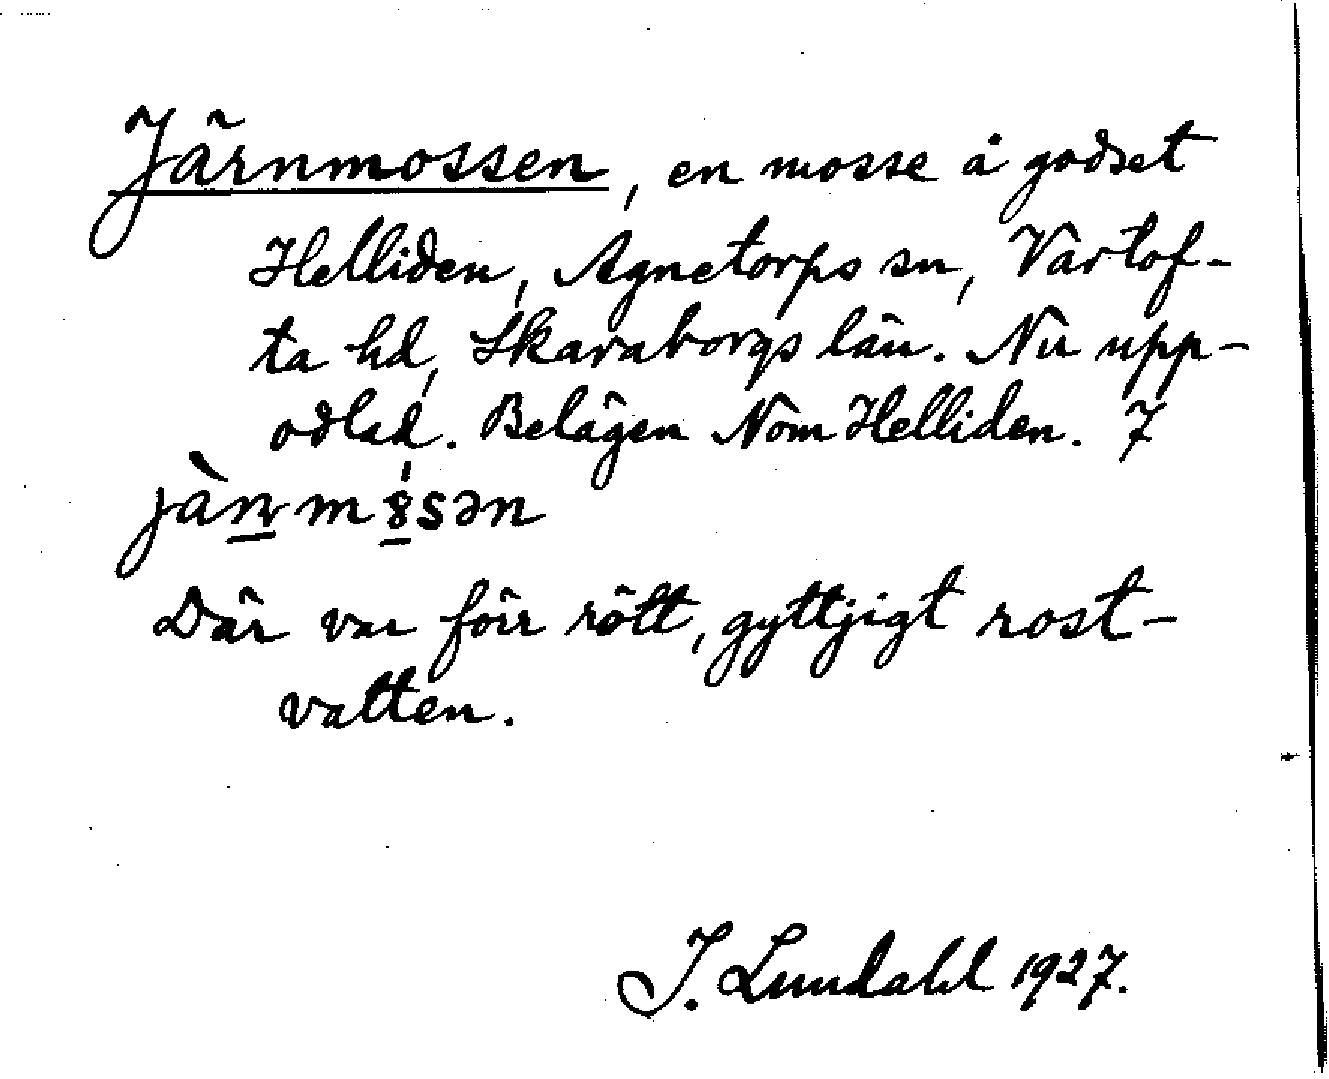 Järnmossen, en mosse å godset
Helliden, Agnetorps sn, Vartof-
ta hd, Skaraborgs län. Nu upp-
odlad. Belägen Nom Helliden. 7
jàn m8sən
Där var förr rött, gyttjigt rost-
vatten.
J. Lundahl 1927.